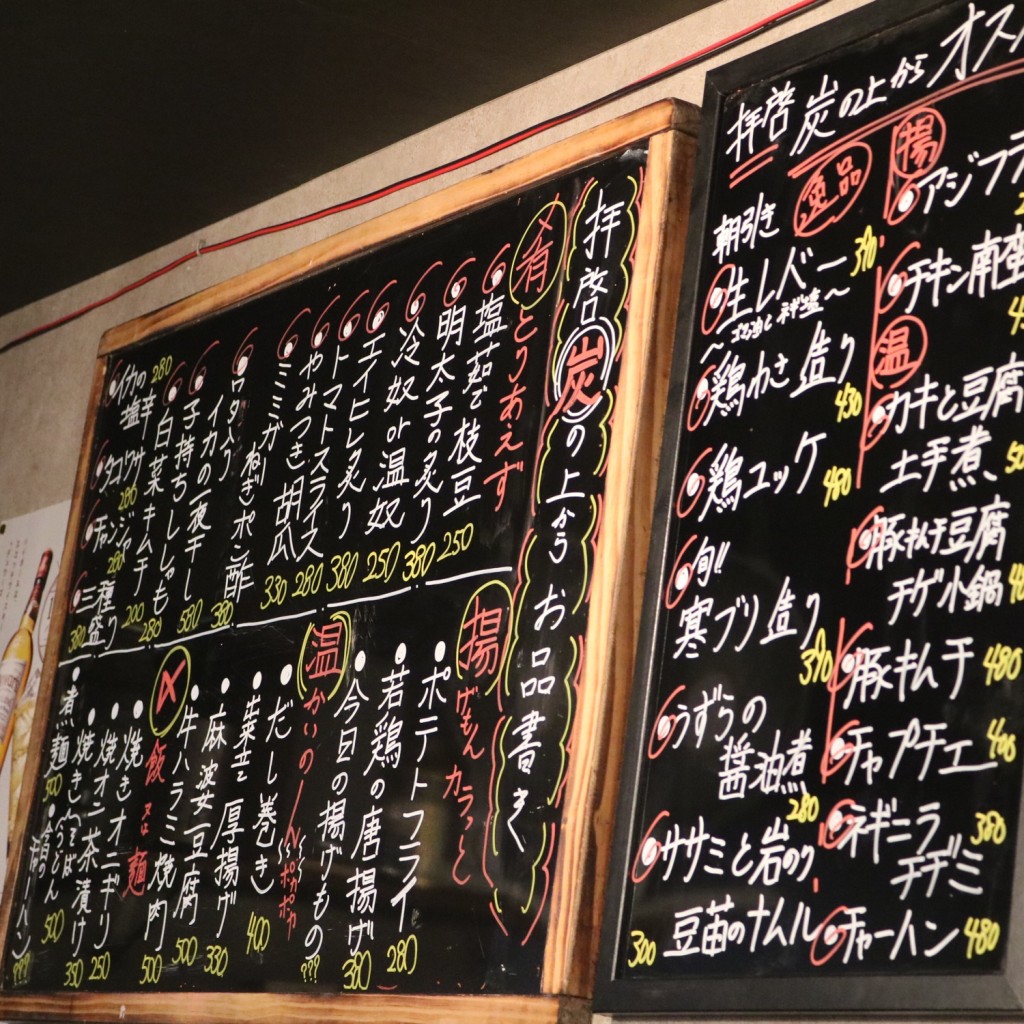 拝啓 炭の上から お品書き
肴 とりあえず
塩茹で枝豆 250
明太子の炙り 380
冷奴or温奴 250
エイヒレ炙り 380
トマトスライス 280
やみつき胡瓜 330
ミミガーねぎポン酢 380
ワタ入りイカの一夜干し 580
子持ちししゃも 280
白菜キムチ 200
イカの塩辛 280
タコワサ 280
チャンジャ 280
三種盛り 380
揚げもん カラっと
ポテトフライ 280
若鶏の唐揚げ 380
今日の揚げもの ???
温かいの ポカポカ
だし巻き 400
菜苔 厚揚げ 330
麻婆豆腐 500
牛ハラミ焼肉 500
〆 飯又は麺
焼きオニギリ 250
焼オニ茶漬け 350
焼き(そば・うどん) 500
煮麺 300
拝啓 炭の上から オス
逸品
朝引き
生レバー 390
〜ごま油とネギ塩〜
鶏わさ造り 430
鶏ユッケ 480
旬!!
寒ブリ造り 390
うずらの
醤油煮 280
ササミと岩のり
豆苗のナムル 300
揚
アジフラ
チキン南蛮
温
カキと豆腐
土手煮
豚キムチ豆腐
チゲ小鍋
豚キムチ 480
チャプチェ 400
ネギニラ
チヂミ 380
チャーハン 480